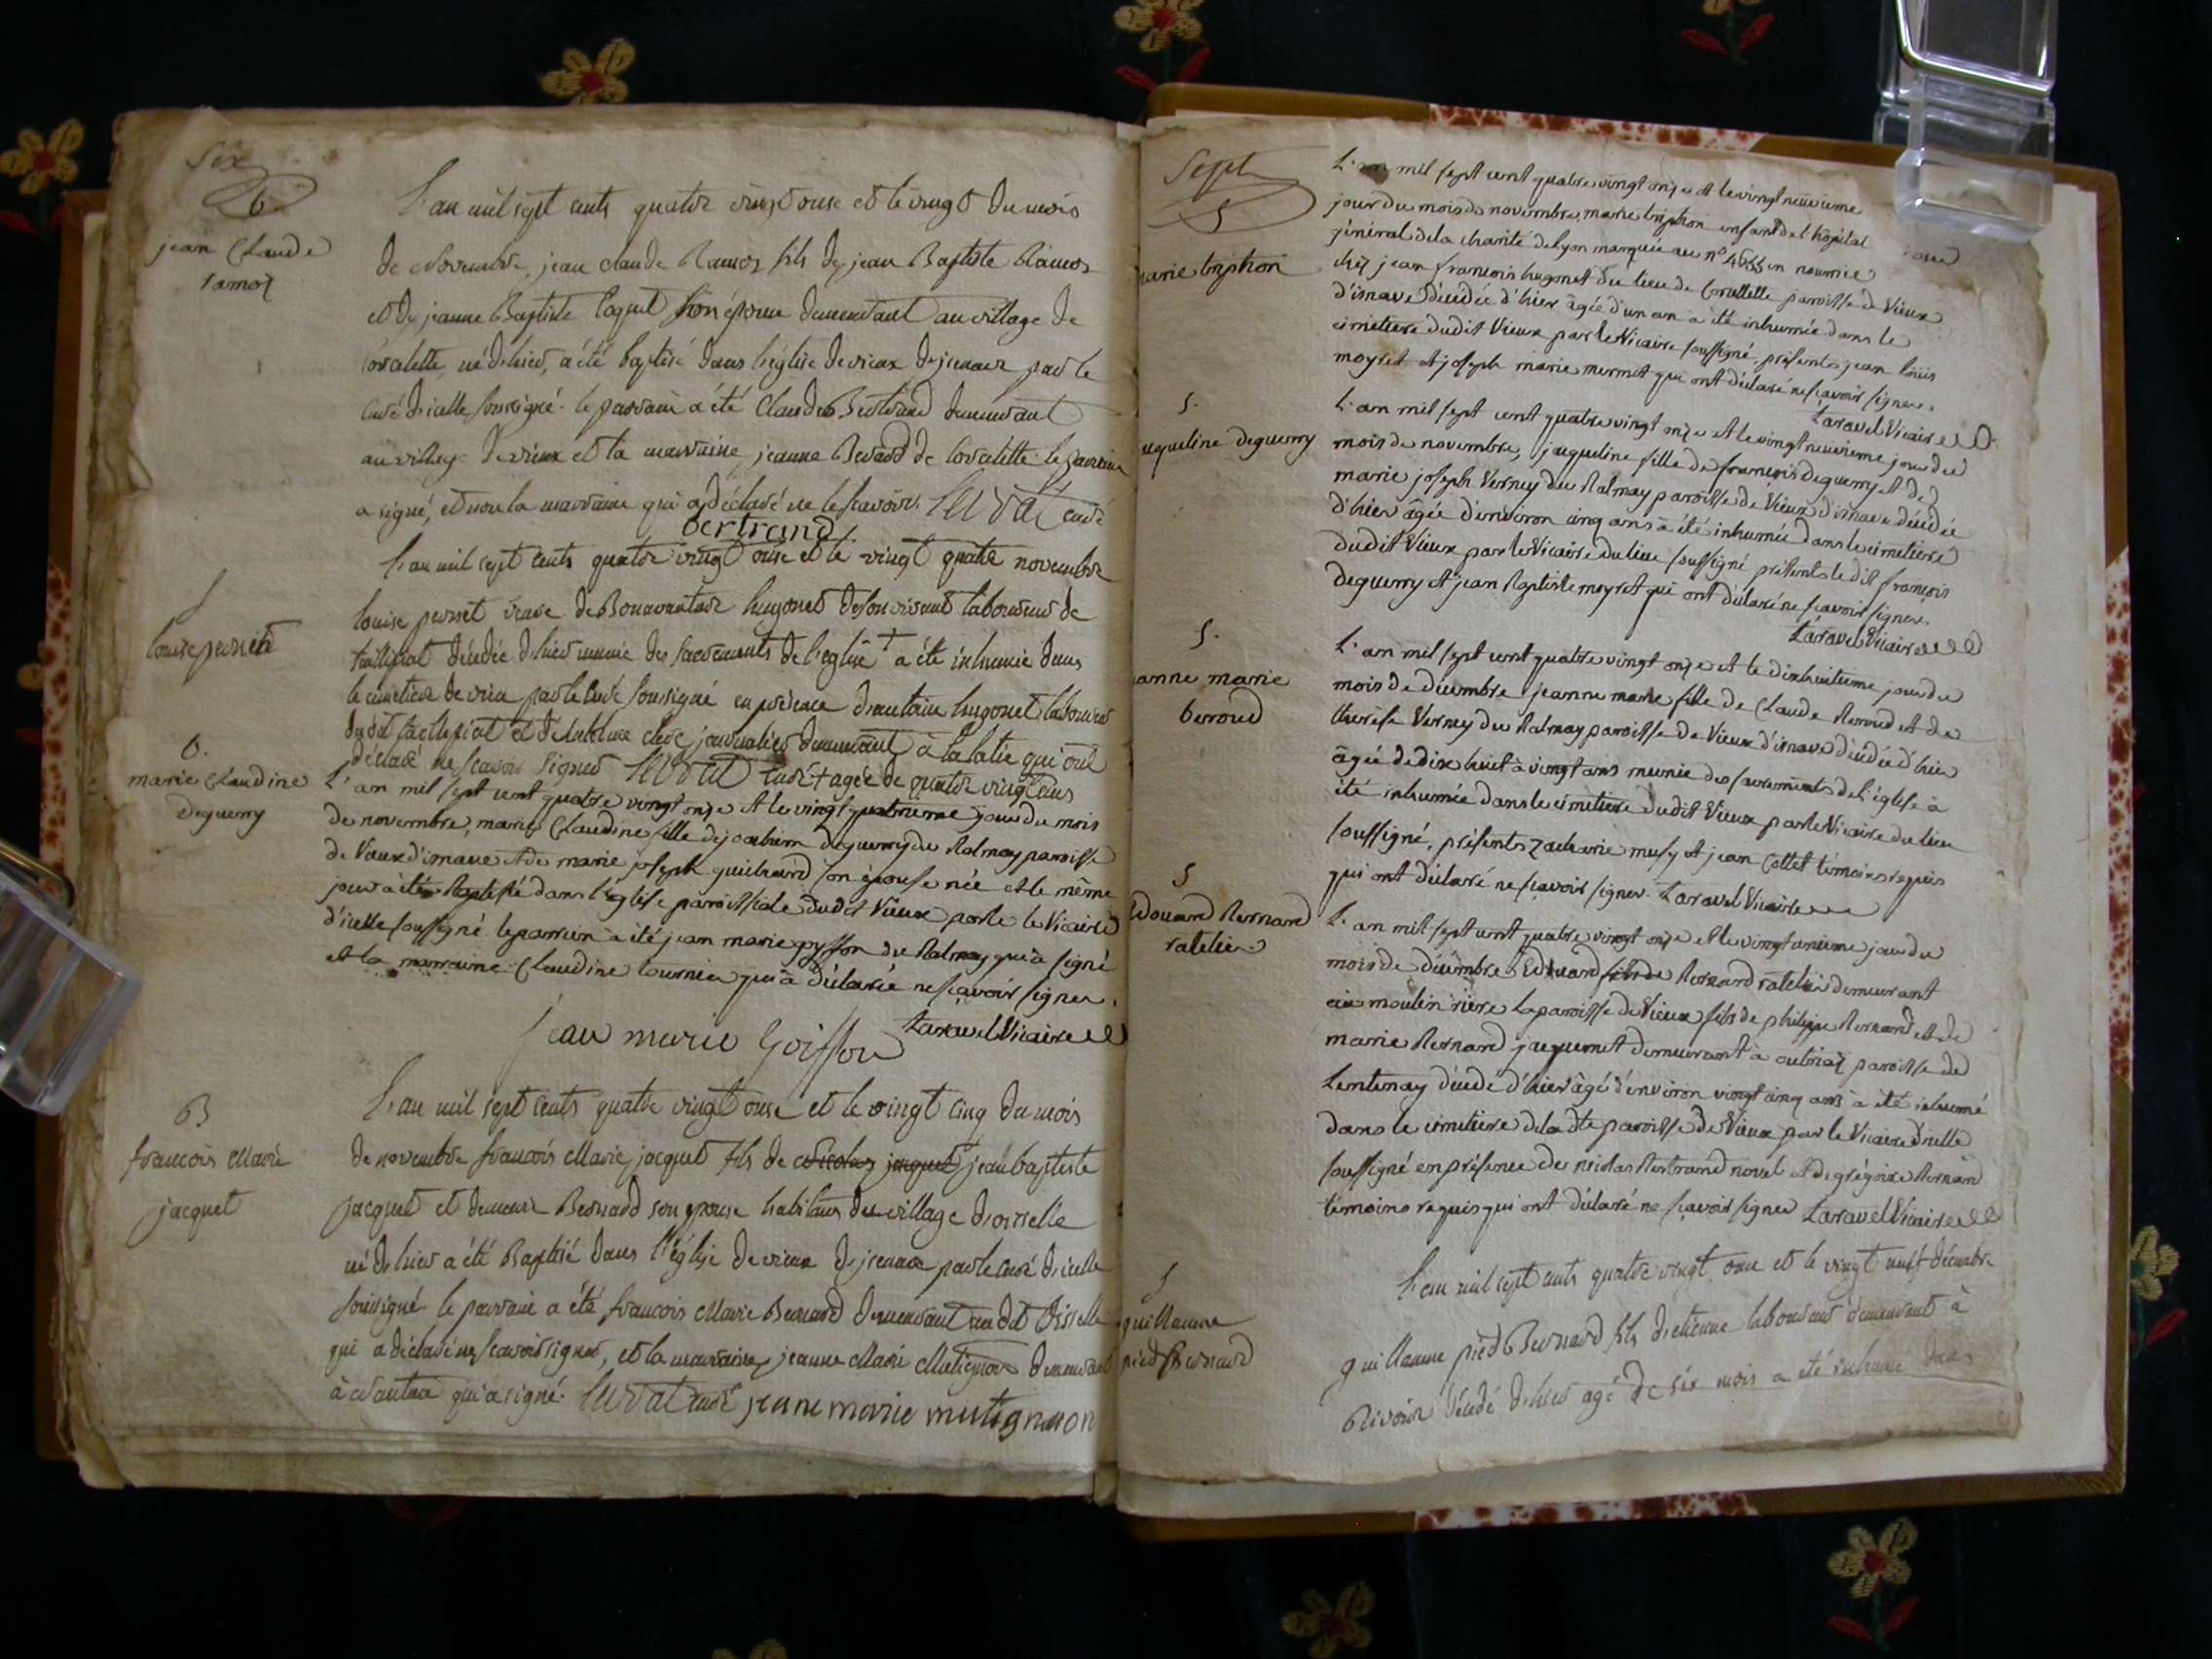 Six
6
jean Claude
ramoz
L'an mil sept cents quatre vingt onse et le vingt du mois
de Novembre, jean claude Ramoz fils de jean Baptiste Ramoz
et de jeanne Baptiste Coquet son épouse demeurant au village de
Corcelette, né d'hier, a été baptisé dans l'église de vieux d'jzenave par le
curé d'icelle soussigné. le parrain a été Claude Bertrand demeurant
au village de vieux et la marraine jeanne Berard de Corcelette. le parrain
a signé, et non la marraine qui a déclaré ne le scavoir. curé
bertrand
S
louise perret
L'an mil sept cents quatre vingt onse et le vingt quatre novembre
louise perret veuve de Bonavanture hugonet de son vivant laboureur de
tallipiat décédée d'hier munie des sacrements de l'eglise + a été inhumée dans
le cimetiere de vieu par le curé soussigné en présence d'antoine hugonet laboureur
dudit tallipiat et d'Anthelme clerc journalier demeurant à la latie qui ont
déclaré ne scavoir signer curé + agée de quatre vingt ans
6.
marie Claudine
Deguerry
L'an mil sept cent quatre vingt onze et le vingt quatrieme jour du mois
de novembre, marie Claudine fille de joachim deguerry du Balmay paroisse
de Vieux d'isnave et de marie joseph guichard son épouse née et le même
jour à été Baptisée dans l'église paroissiale dudit Vieux par le le Vicaire
d'icelle soussigné. le parrein à été jean marie goyffon du Balmay qui à signé
et la marraine Claudine tournier qui à déclarée ne sçavoir signer.
jean marie Goiffon Laravel Vicaire
B
francois Marie
jacquet
L'an mil sept cents quatre vingt onse et le vingt cinq du mois
de novembre francois Marie jacquet fils de Nicolas jacquet jean baptiste
jacquet et demeure Bernard son epouse habitans du village d'oisselle
né d'hier a été Baptisé dans l'église de vieux d'jzenave par le curé d'icelle
soussigné. le parrain a été francois Marie Bernard demeurant audit Oisselle
qui a déclaré ne scavoir signer, et la marraine jeanne Marie Matignon demeurant
à qui a signé. curé jeane marie mutignon
Sept
S
marie triphon
L'an mil sept cent quatre vingt onze et le vingt neuvieme
jour du mois de novembre, marie triphon enfant de l'hôpital
jénéral de la charité de Lyon marquée au n° en nourrice
chez jean francois hugonet du lieu de Corcellette paroisse de Vieux
d'isnave décédée d'hier âgée d'un an à été inhumée dans le
cimetiere dudit Vieux par le Vicaire soussigné, présents jean Louis
moyret et joseph marie mermet qui ont déclaré ne sçavoir signer.
Laravel Vicaire
S.
jaqueline deguerry
L'an mil sept cent quatre vingt onze et le vingt neuvieme jour du
mois de novembre, jacqueline fille de françois deguerry et de
marie joseph Verney du Balmay paroisse de Vieux d'isnave décédée
d'hier âgée d'environ cinq ans à été inhumée dans le cimetiere
dudit Vieux par le Vicaire du lieu soussigné présents ledit françois
deguerry et jean Baptiste moyret qui ont déclaré ne sçavoir signer.
Laravel Vicaire
S.
jeanne marie
beroud
L'an mil sept cent quatre vingt onze et le dixhuitieme jour du
mois de décembre jeanne marie fille de Claude Beroud et de
therese Verney du Balmay paroisse de Vieux d'isnave décédée d'hier
âgée de dix huit à vingt ans munie des sacrements de l'église à
été inhumée dans le cimetiere dudit Vieux par le Vicaire du lieu
soussigné, présents zacharie musy et jean Collet témoins requis
qui ont déclaré ne sçavoir signer. Laravel Vicaire
S
Edouard Bernard
ratelier
L'an mil sept cent quatre vingt onze et le vingt unieme jour du
mois de décembre Edouard fils de Bernard ratelier demeurant
au moulin riere la paroisse de Vieux fils de philippe Bernard et de
marie Bernard jaquemet demeurant à outriaz paroisse de
Lentenay décédé d'hier âgé d'environ vingt cinq ans à été inhumé
dans le cimetiere de la dte paroisse de Vieux par le Vicaire d'icelle
soussigné en présence de nicolas Bertrand novel et de grégoire Bernard
témoins requis qui ont déclaré ne sçavoir signer Laravel Vicaire
S
guillaume
pied Bernard
L'an mil sept cents quatre vingt onse et le vingt neuf décembre
guillaume pied Bernard fils d'etienne laboureur demeurant à
Rivoire décédé d'hier agé de six mois a été inhumé dans